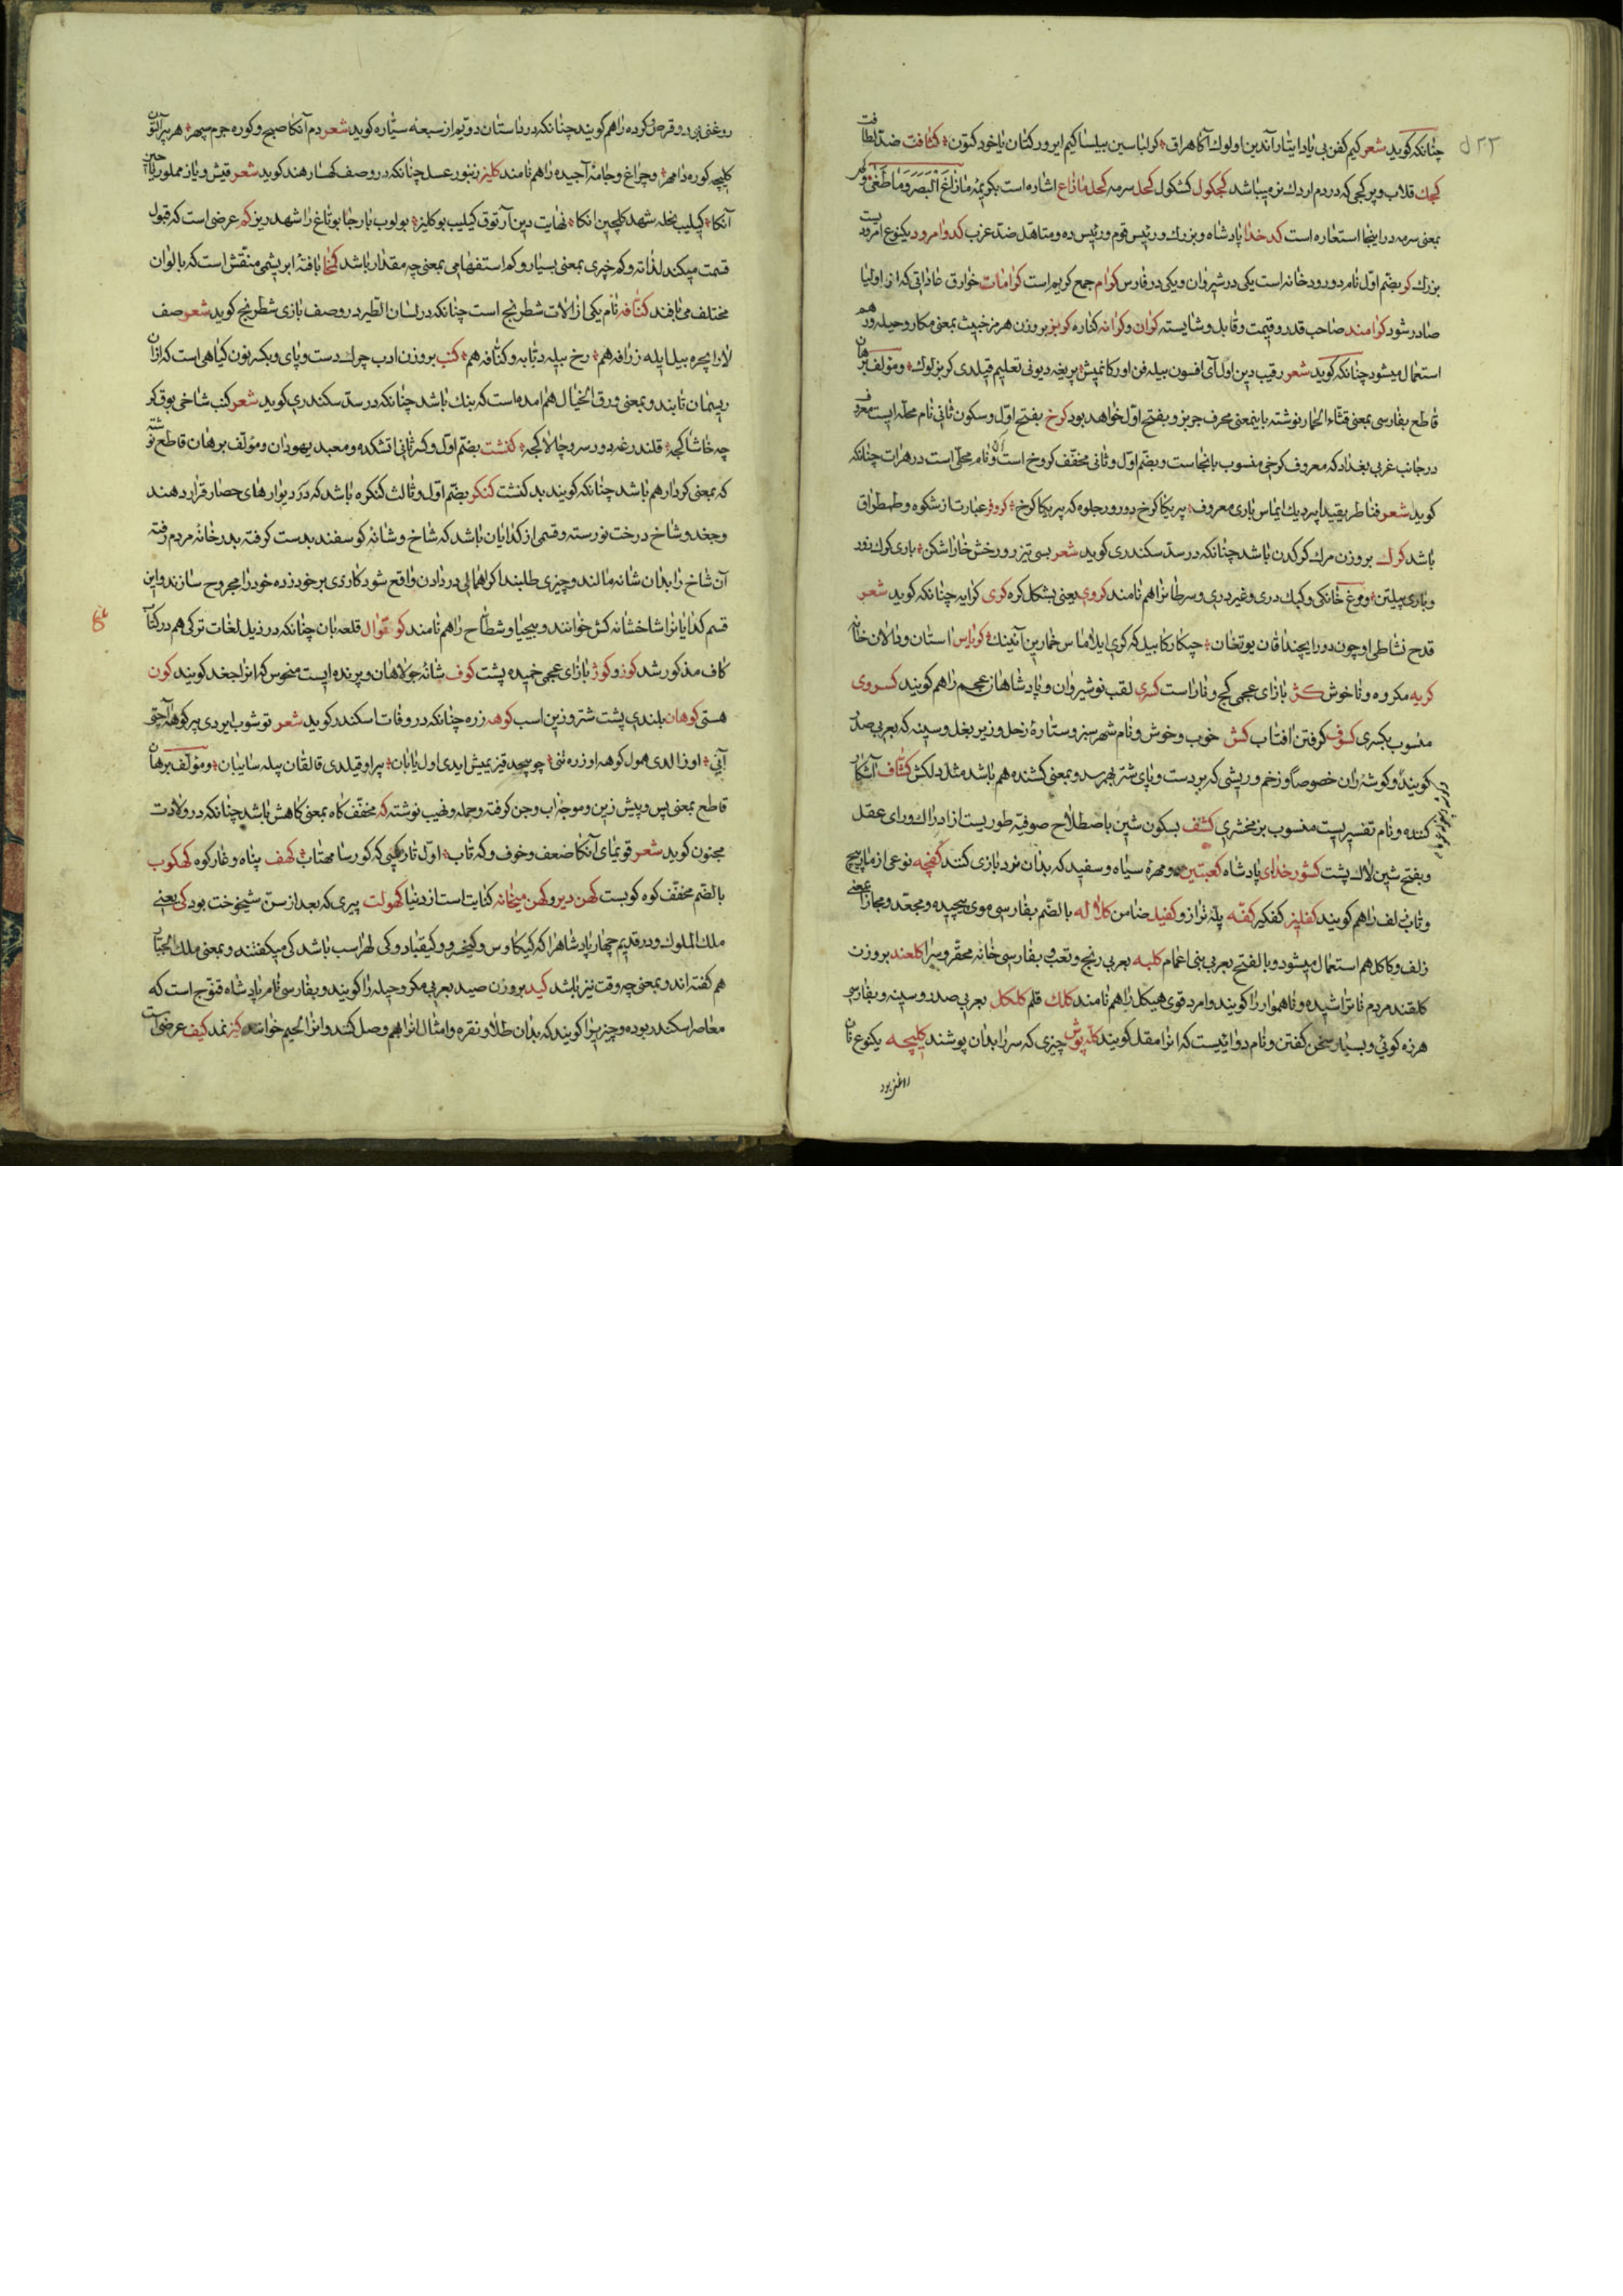 ۵۲۲
چنانکه کوید شعر کیم کفن بی یادا یتار آندین اولوک آکا هراق کر لباسین بیلسا کیم ایرور کتان یا خود کتون کثافت ضد لطافت
کجک قلاب و پر کجی که در دم اردک نره میباشد کجکول کشکول کحل سرمه کحل مازاغ اشاره است بکریمه مازاغ البصر وما طغی و
بمعنی سرمه در اینجا استعاره است کدخدا پادشاه و بزرک و رئیس قوم و رئیس ده و متاهل ضد عزب کدو امرود یکنوع امرودیست
بزرک کر بضم اول نام دو رودخانه است یکی در شیروان و یکی در فارس کرام جمع کریم است کرامات خوارق عاداتی که از اولیا
صادر شود کرامند صاحب قدر و قیمت و قابل و شایسته کران و کرانه کناره کربز بروزن هرمز خبیث بمعنی مکار و حیله ور هم
استعمال میشود چنانکه کوید شعر رقیب دین اول آی افسون بیله فن اورکانمیش پریغه دیونی تعلیم قیلدی کربزلوک و مؤلف برهان
قاطع بفارسی بمعنی قثاء الحمار نوشته باینمعنی محرف جربز و بفتح اول خواهد بود کرخ بفتح اول و سکون ثانی نام محله ایست معروف
در جانب غربی بغداد که معروف کرخی منسوب بانجاست و بضم اول و ثانی مخفف کروخ است و نام محلی است در هرات چنانکه
کوید شعر فناطریقیدا پیر دیک ایماس یاری معروف پریکا کرخ دورور جلوه که پریکا کرخ کروفر عبارت از شکوه و طمطراق
باشد کرک بروزن مرک کرکدن باشد چنانکه در سد سکندری کوید شعر بسی تیزرو رخش خاراشکن باری کرک زور
وباری پیلتن و مرغ خانکی و کبک دری و غیر دری و سرطانرا هم نامند کروی یعنی بشکل کره کری کرایه چنانکه کوید شعر
قدح نشاطی اوچون دورا یچندا قان یوتغان چیکارکا بیل که کری ایلاماس خمارین آنینک کریاس استان و دالان خانه
کریه مکروه و ناخوش کژ بازای عجمی کج و ناراست کسری لقب نوشیروان و پادشاهان عجم را هم کویند کسروی
منسوب بکسری کسوف کرفتن افتاب کش خوب و خوش و نام شهر سبز و ستارهٔ زحل و زیر بغل و سینه که بعربی صدر
کویند و کوشهٔ ران خصوصا و زخم و ریشی که بر دست و پای شتر بهم رسد و بمعنی کشنده هم باشد مثل دلکش کشاف آشکار
کننده و نام تفسیریست منسوب بزمخشری کشف بسکون شین باصطلاح صوفیه طوریست از ادراک ورای عقل
و بفتح شین لاک پشت کشورخدای پادشاه کعبتین دو مهرهٔ سیاه و سفید که بدان نرد بازی کنند کفچه نوعی از مار و پیچ
و تاب زلف را هم کویند کفلیز کفکیر کفه پلهٔ ترازو کفیل ضامن کلاله بالضم بفارسی موی پیچیده و مجعد و مجازا بمعنی
زلف و کاکل هم استعمال میشود و بالفتح بعربی بنی اعمام کلبه بعربی رنج و تعب و بفارسی خانه محقر و سرا کلعند بروزن
کلقند مردم ناتراشیده و ناهموار را کویند و امرد قوی هیکل را هم نامند کلک قلم کلکل بعربی صدر و سینه و بفارسی
هرزه کوئی و بسیار سخن کفتن و نام دوائیست که انرا مقل کویند کله پوش چیزی که سر را بدان پوشند کلیچه یکنوع نان
روغنی بود و قرص کرده را هم کویند چنانکه در داستان دویم از سبعه سیاره کوید شعر دم آنکا صبح و کوره جرم سپهر هر بیر آلتون
کلیچه کوره دا مهر و چراغ و جامهٔ آجیده را هم نامند کلیز زنبور عسل چنانکه در وصف کهسار هند کوید شعر قیش و یاز مملو ریاحین
آنکا کیلیب نخله شهد کلچین انکا نهایت دین آرتوق کیلیب بو کلیز بولوب بار جا بو تاغ را شهد ریز کم عرضی است که قبول
قسمت میکند لذاته و کم خبری بمعنی بسیار و کم استفهامی بمعنی چه مقدار باشد کمخا بافتهٔ ابریشمی منقش است که بالوان
مختلف می بافند کنافه نام یکی از الات شطرنج است چنانکه در لسان الطیر در وصف بازی شطرنج کوید شعر صف
لار ایچره بیل ایله زرافه هم رخ بیله دبابه و کنافه هم کنب بروزن ادب چرک دست و پای و بکسر نون کیاهی است که ازان
ریسمان تابند و بمعنی ورق الخیال هم امده است که بنک باشد چنانکه در سد سکندری کوید شعر کنب شاخی یوق کر
چه خاشاکچه قلندرغه دور سرو چالاکچه کنشت بضم اول و کسر ثانی اتشکده و معبد یهودان و مؤلف برهان قاطع نوشته
که بمعنی کردار هم باشد چنانکه کویند بد کنشت کنکر بضم اول و ثالث کنکره باشد که در دیوارهای حصار قرار دهند
و جغد و شاخ درخت نورسته و قسمی از کدایان باشد که شاخ و شانهٔ کوسفند بدست کرفته بدر خانهٔ مردم رفته
آن شاخ را بدان شانه مالند و چیزی طلبند اکر اهمالی در دادن واقع شود کاردی بر خود زده خود را مجروح سازند و این
قسم کدایانرا شاخشانه کش خوانند و بیحیا و شطاح را هم نامند کوتوال قلعه بان چنانکه در ذیل لغات ترکی هم در کتاب
کاف مذکور شد کوز و کوژ بازای عجمی خمیده پشت کوف شانهٔ جولاهان و پرنده ایست منحوس که انرا جغد کویند کون
هستی کوهان بلندی پشت شتر و زین اسب کوهه زره چنانکه در وفات اسکندر کوید شعر توشوب ایردی بیر کوهه آچتی
آنی اوزالدی هول کوهه اوزره تنی چو پیچید قیزیمیش ایدی اول یابان پیراو قیلدی قالقان بیله سایبان و مؤلف برهان
قاطع بمعنی پس و پیش زین و موجهٔ اب و جن کرفته و حمله و نهیب نوشته که مخفف کاه بمعنی کاهش باشد چنانکه در ولادت
مجنون کوید شعر قویمای آنکا ضعف و خوف و که تاب اول تاریکی که کورسا مهتاب کهف پناه و غار کوه کهکوب
بالضم مخفف کوه کوبست کهن دیر و کهن میخانه کنایت است از دنیا کهولت پیری که بعد از سن شیخوخت بود کی یعنی
ملک الملوک و در قدیم چهار پادشاه را که کیکاوس و کیخسرو و کیقباد و کی لهراسب باشد کی میکفتند و بمعنی ملک الجبار
هم کفته اند و بمعنی چه وقت نیز باشد کید بروزن صید بعربی مکر و حیله را کویند و بفارسی نام پادشاه قنوج است که
معاصر اسکندر بوده و چیزیرا کویند که بدان طلا و نقره و امثال انرا بهم وصل کنند و انرا لحیم خوانند کیز نمد کیف عرضی است